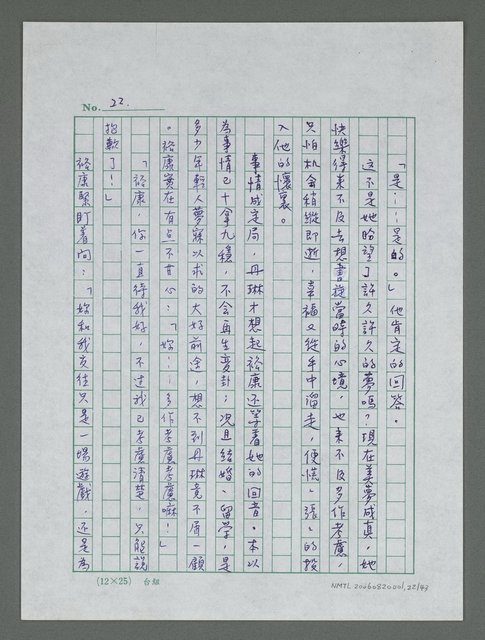 No. 22.
「是……是的。」他肯定的回答。
這不是她盼望了許久許久的夢嗎？現在美夢成真，她
快樂得來不及去想書旋當時的心境，也來不及多作考慮，
只怕机会稍縱即逝，幸福又從手中溜走，便慌慌張張的投
入他的懷裏。
事情成定局，丹琳才想起裕康还等着她的回音。本以
為事情已十拿九穩，不会再生变卦；況且結婚、留学，是
多少年輕人夢寐以求的大好前途，想不到丹琳竟不屑一顧
。裕康实在有点不甘心：「妳……多作考慮考慮嘛！」
「裕康，你一直待我好，不过我已考慮清楚，只能說
抱歉了！……」
裕康緊盯着问：「妳和我交往只是一場遊戲，还是為
(12×25) 台組
NMTL 20060820001,22/43